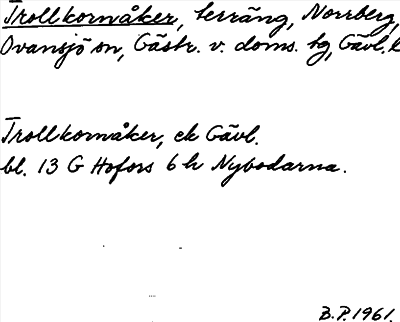 Trollkornåker, terräng, Norrberg,
Ovansjö sn, Gästr. v. doms. hg, Gävl. l
Trollkornåker, ek Gävl.
bl. 13 G Hofors 6 h Nybodarna.
B.P. 1961.